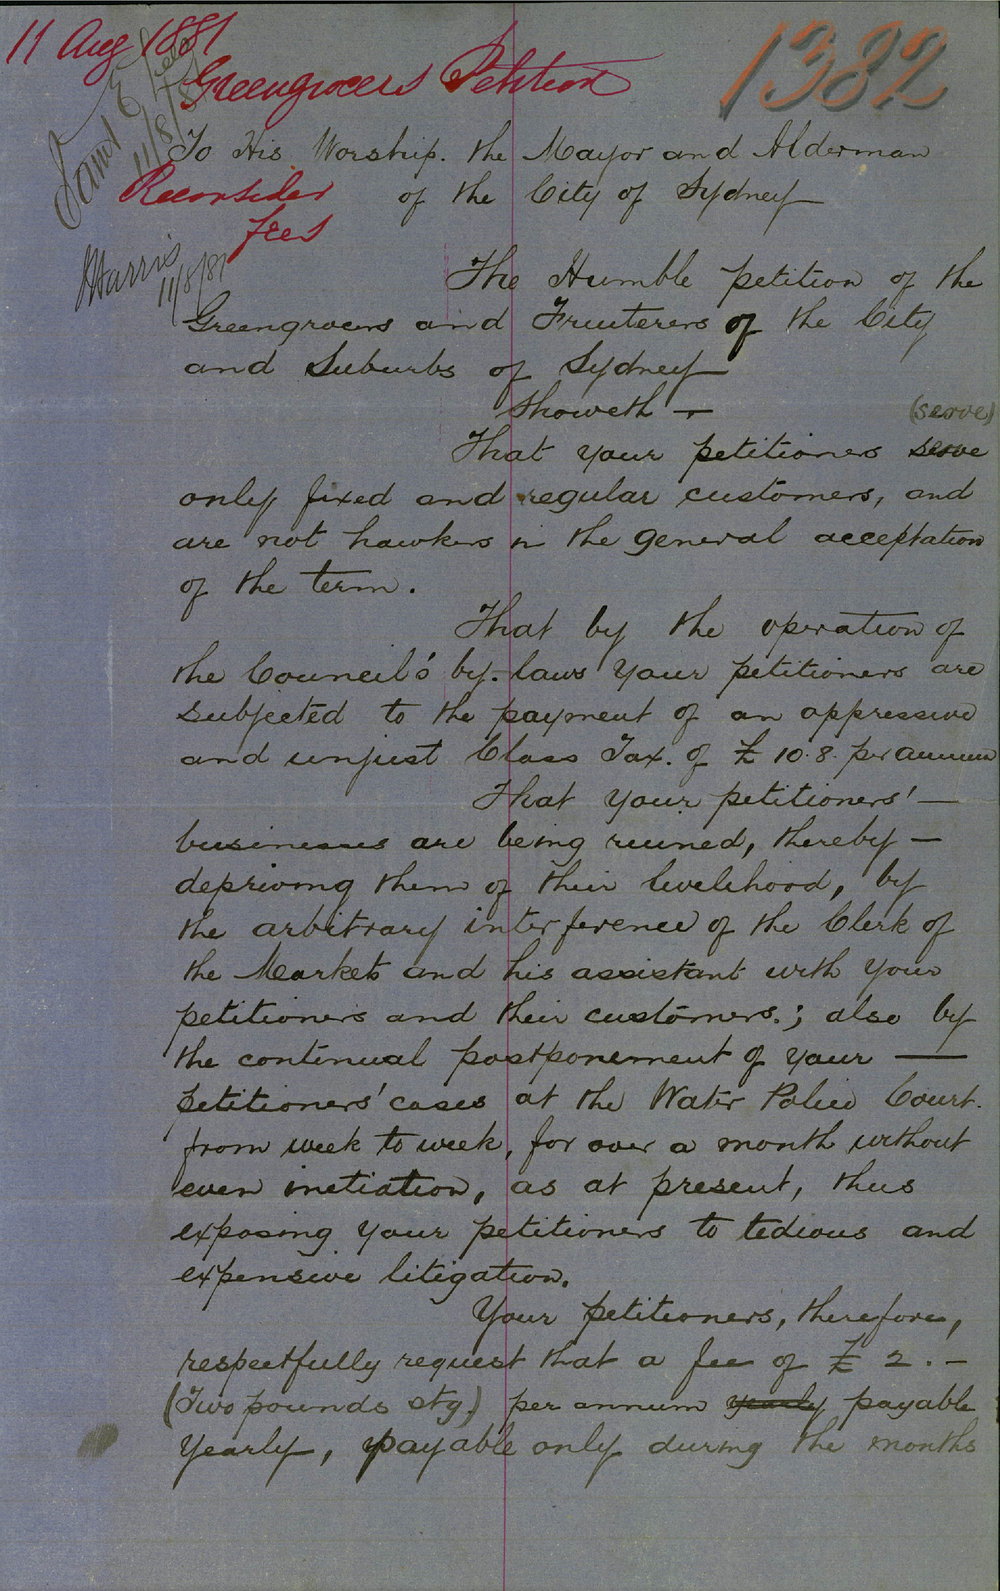 11 Aug 1881
1382
Greengrocers Petition
Saml E
11/8/81
To His Worship. the Mayor and Alderman
Reconsider
of the City of Sydney
fees
Harris
11/8/81
The Humble petition of the
Greengrocers and Fruiterers of the City
and Suburbs of Sydney
Showeth —
(serve)
That your petitioners serve
only fixed and regular customers, and
are not hawkers in the general acceptation
of the term.
That by the operation of
the Council's by-laws your petitioners are
subjected to the payment of an oppressive
and unjust Class Tax. of £ 10.8. per annum
That your petitioners' —
businesses are being ruined, thereby —
depriving them of their livelihood, by
the arbitrary interference of the Clerk of
the Markets and his assistant with your
petitioners and their customers.; also by
the continual postponement of your —
petitioners' cases at the Water Police Court.
from week to week, for over a month without
even
as at present, thus
exposing your petitioners to tedious and
expensive litigation.
Your petitioners, therefore,
respectfully request that a fee of £ 2. —
(Two pounds stg) per annum yearly payable
yearly, payable only during the months